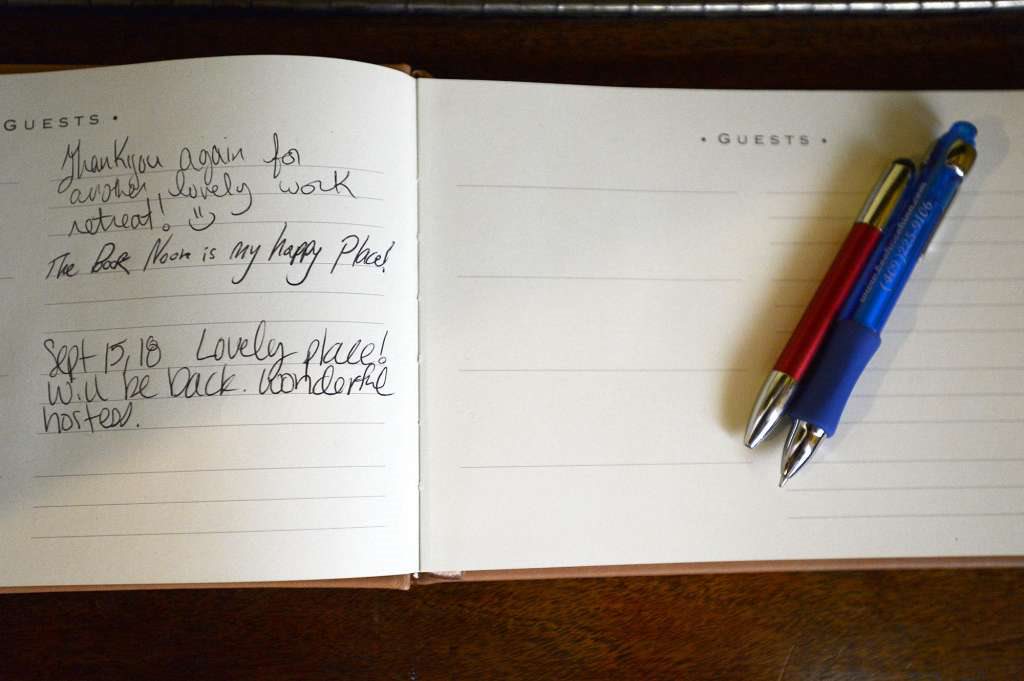 GUESTS •
Thank you again for
another lovely work
retreat! :)
The Book Nook is my happy Place!
Sept 15, 18 Lovely place!
Will be back. Wonderful
hostess.
• GUESTS •